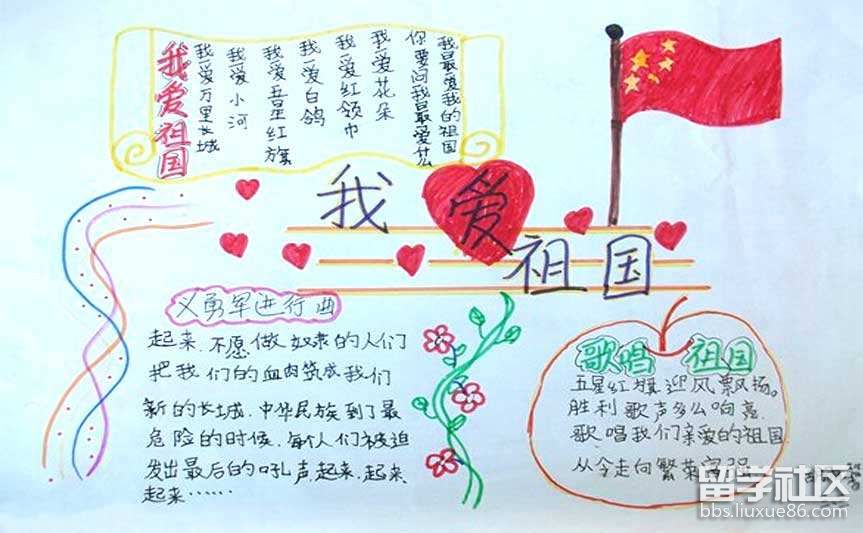 我爱祖国
我爱万里长城
我爱小河
我爱五星红旗
我爱白鸽
我爱红领巾
我爱花朵
你要问我最爱什么
我最爱我的祖国
我爱祖国
义勇军进行曲
起来,不愿做奴隶的人们
把我们的血肉筑成我们
新的长城,中华民族到了最
危险的时候,每个人们被迫
发出最后的吼声,起来,起来,
起来……
歌唱 祖国
五星红旗迎风飘扬。
胜利歌声多么响亮
歌唱我们亲爱的祖国
从今走向繁荣富强
留学社区
bbs.liuxue86.com